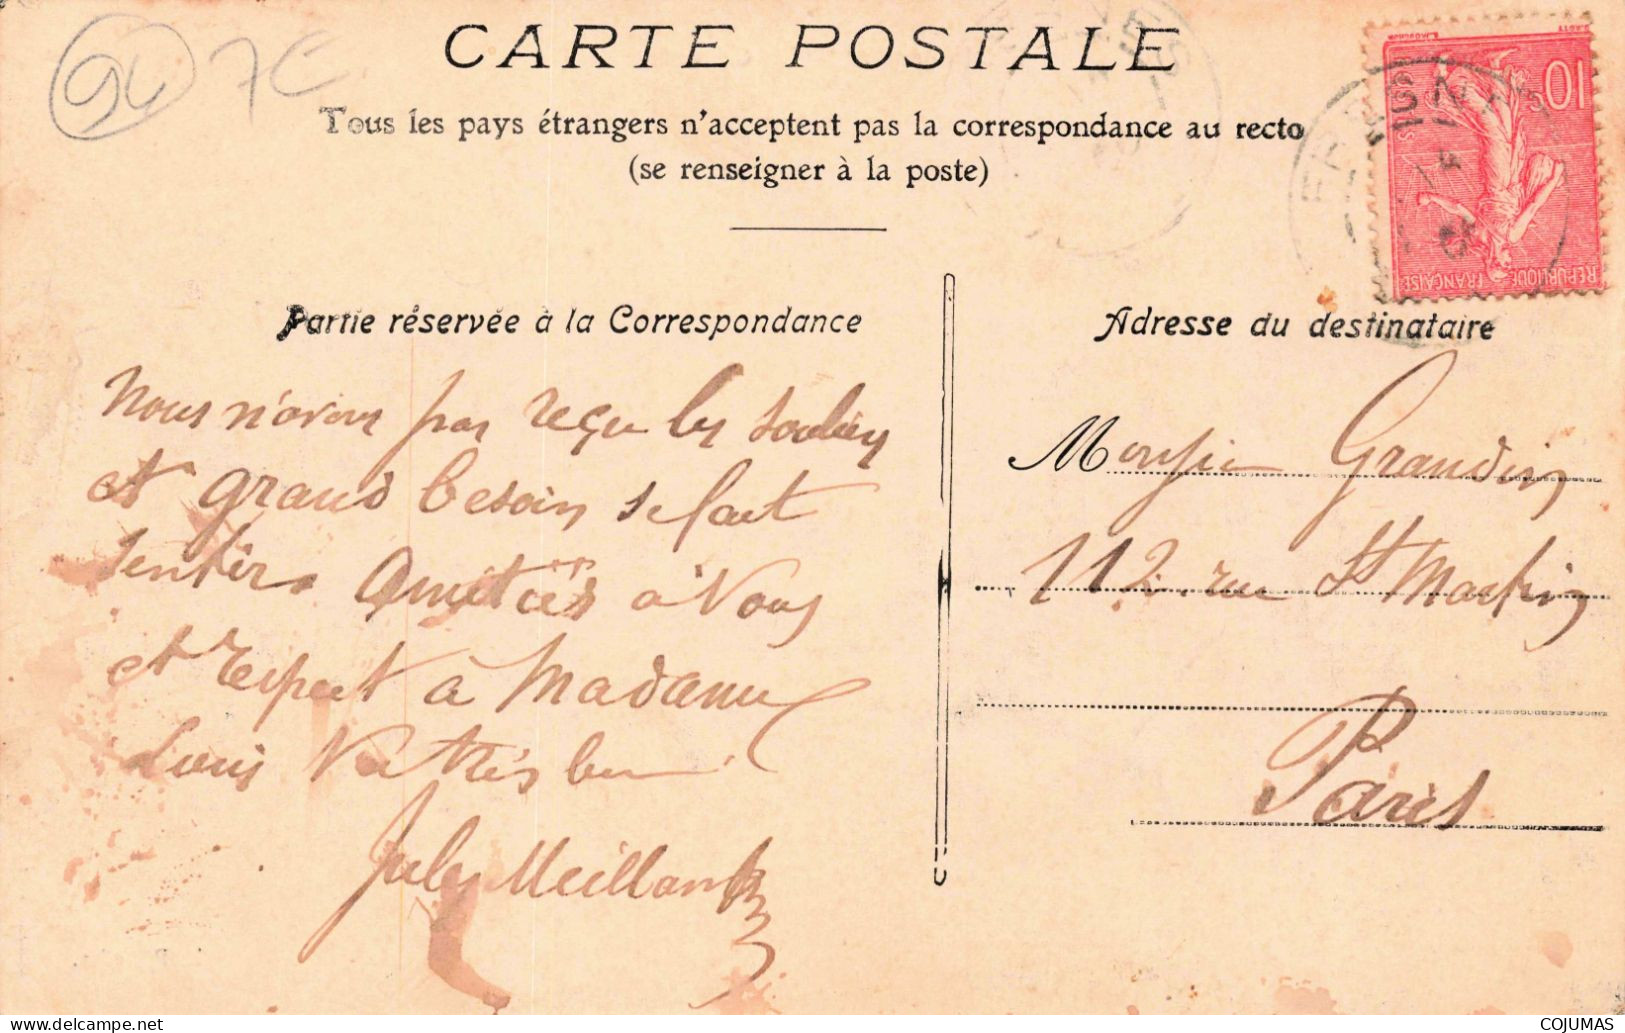 94 7€
CARTE POSTALE
Tous les pays étrangers n'acceptent pas la correspondance au recto
(se renseigner à la poste)
10c
RÉPUBLIQUE FRANÇAISE
Partie réservée à la Correspondance
Nous n'avons pas reçu les souliers
et grand besoin se fait
sentir. Amitiés à Vous
et respect à Madame
Louis
Jules Meillant
Adresse du destinataire
Monsieur Grandin
112 rue St Martin
Paris
COJUMAS